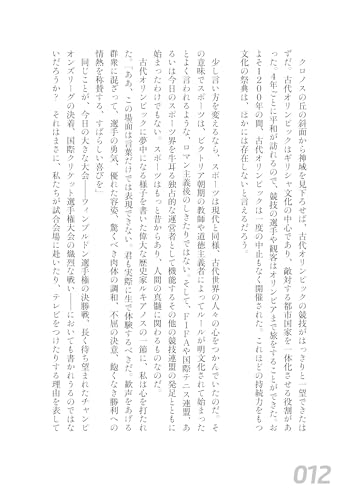 クロノスの丘の斜面から神域を見下ろせば、古代オリンピックの競技がはっきりと一望できたは
ずだ。古代オリンピックはギリシャ文化の中心であり、敵対する都市国家を一体化させる役割があ
った。4年ごとに平和が訪れるので、競技の選手や観客はオリンピアまで旅をすることができた。お
よそ1200年の間、古代オリンピックは一度の中止もなく開催された。これほどの持続力をもつ
文化的祭典は、ほかには存在しないと言えるだろう。
少し言い方を変えるなら、スポーツは現代と同様、古代世界の人々の心をつかんでいたのだ。そ
の意味でスポーツは、ビクトリア朝期の教師や道徳主義者によってルールが明文化されて始まった
とよく言われるような、ロマン主義後のしきたりではない。そして、FIFAや国際テニス連盟、あ
るいは今日のスポーツ界を牛耳る独占的な運営者として機能するその他の競技連盟の発足とともに
始まったわけでもない。スポーツはもっと昔からあり、人間の真髄に関わるものなのだ。
古代オリンピックに夢中になる様子を書いた偉大な歴史家ルキアノスの一節に、私は心を打たれ
た。「ああ、この場面は言葉だけでは表現できない。君も実際に生で体験するべきだ。歓声をあげる
群衆に混ざって、選手の勇気、優れた容姿、驚くべき肉体の調和、不屈の決意、飽くなき勝利への
情熱を称賛する、すばらしい喜びを……」
同じことが、今日の大きな大会――ウィンブルドン選手権の決勝戦、長く待ち望まれたチャンピ
オンズリーグの決着、国際クリケット選手権大会の熾烈な戦い――においても書かれうるのではな
いだろうか？　それはまさに、私たちが試合会場に赴いたり、テレビをつけたりする理由を表して
012